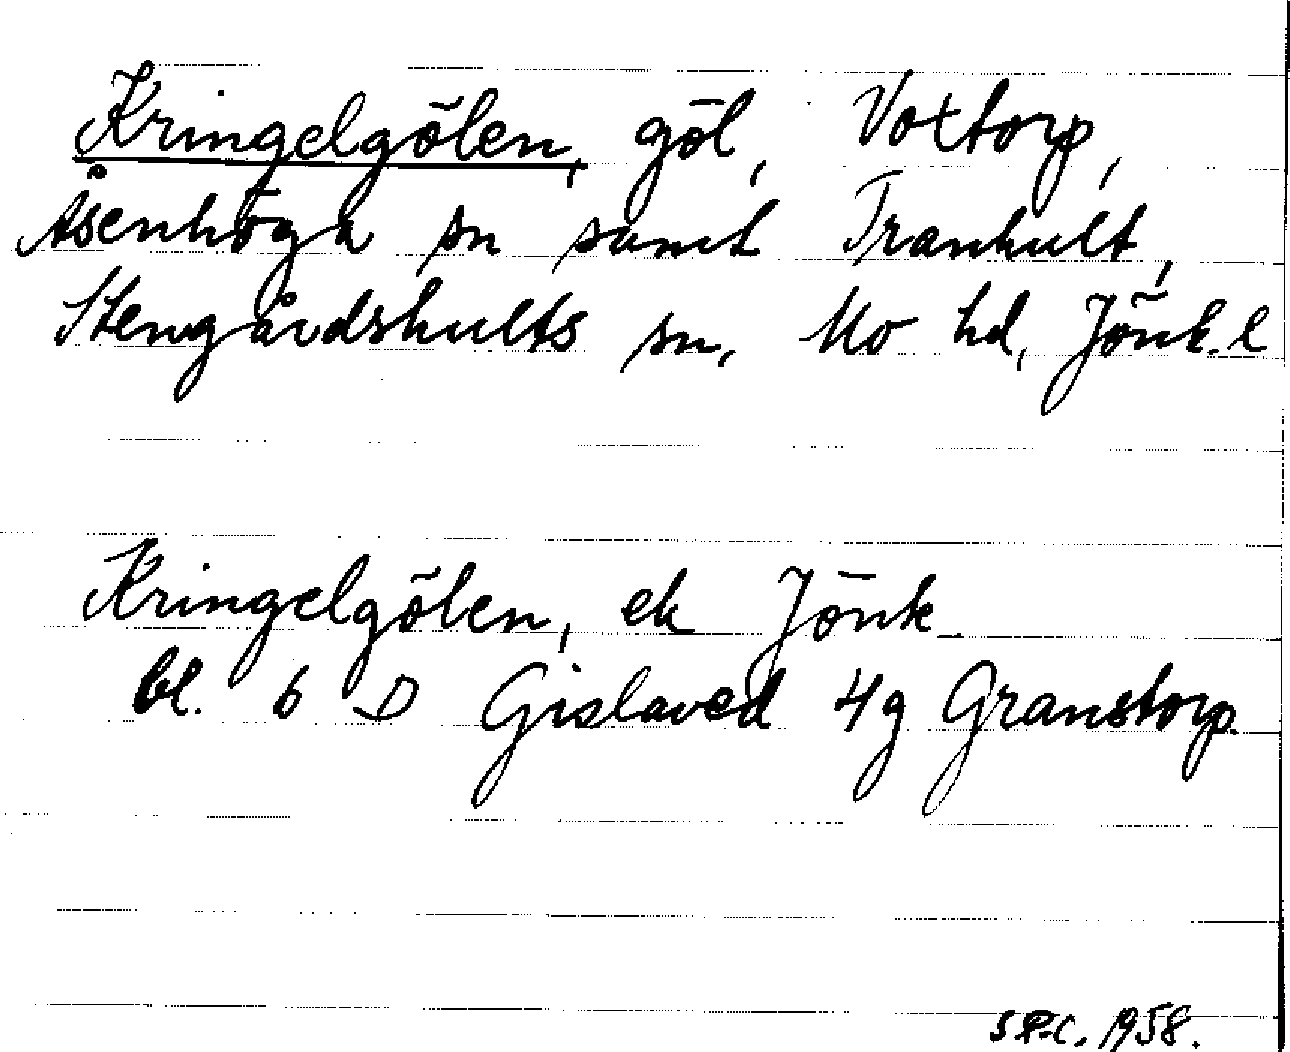 Kringelgölen, göl, Voxtorp,
Åsenhöga sn samt Tranhult,
Stengårdshults sn, Mo hd, Jönk. l
Kringelgölen, ek Jönk
bl. 6 D Gislaved 4g Granstorp.
1958.